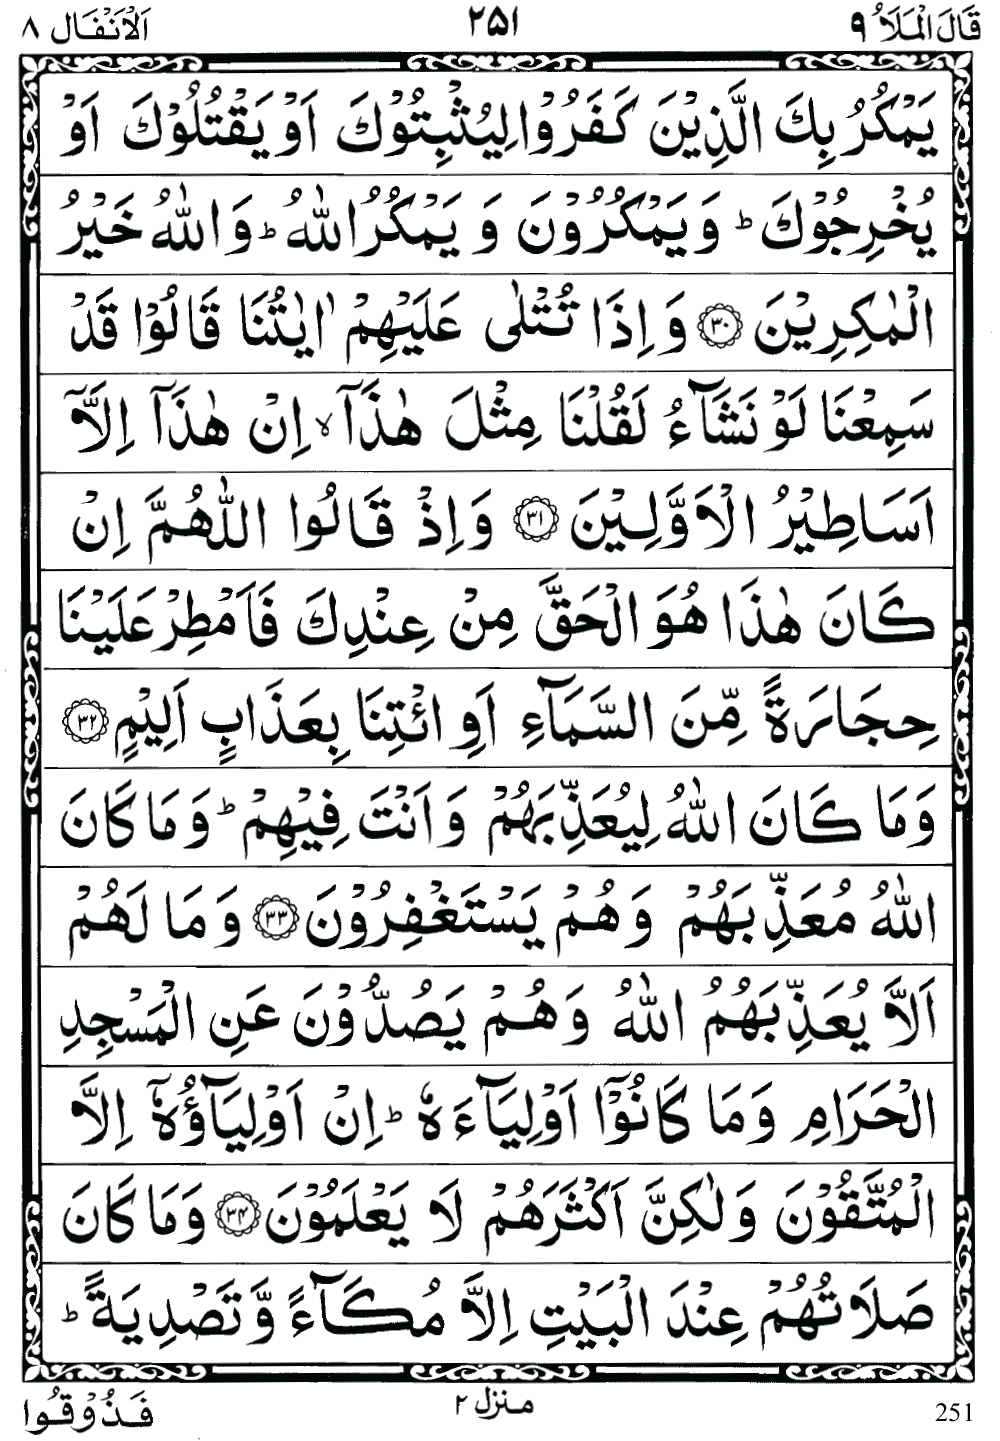 قَالَ الْمَلَاُ ٩ ٢٥١ اَلْاَنْفَال ٨
يَمْكُرُ بِكَ الَّذِيْنَ كَفَرُوْا لِيُثْبِتُوْكَ اَوْ يَقْتُلُوْكَ اَوْ
يُخْرِجُوْكَ ؕ وَ يَمْكُرُوْنَ وَ يَمْكُرُ اللّٰهُ ؕ وَ اللّٰهُ خَيْرُ
الْمٰكِرِيْنَ ﴿۳۰﴾ وَ اِذَا تُتْلٰى عَلَيْهِمْ اٰيٰتُنَا قَالُوْا قَدْ
سَمِعْنَا لَوْ نَشَآءُ لَقُلْنَا مِثْلَ هٰذَاۤ ۙ اِنْ هٰذَاۤ اِلَّاۤ
اَسَاطِيْرُ الْاَوَّلِيْنَ ﴿۳۱﴾ وَ اِذْ قَالُوا اللّٰهُمَّ اِنْ
كَانَ هٰذَا هُوَ الْحَقَّ مِنْ عِنْدِكَ فَاَمْطِرْ عَلَيْنَا
حِجَارَةً مِّنَ السَّمَآءِ اَوِ ائْتِنَا بِعَذَابٍ اَلِيْمٍ ﴿۳۲﴾
وَ مَا كَانَ اللّٰهُ لِيُعَذِّبَهُمْ وَ اَنْتَ فِيْهِمْ ؕ وَ مَا كَانَ
اللّٰهُ مُعَذِّبَهُمْ وَ هُمْ يَسْتَغْفِرُوْنَ ﴿۳۳﴾ وَ مَا لَهُمْ
اَلَّا يُعَذِّبَهُمُ اللّٰهُ وَ هُمْ يَصُدُّوْنَ عَنِ الْمَسْجِدِ
الْحَرَامِ وَ مَا كَانُوْۤا اَوْلِيَآءَهٗ ؕ اِنْ اَوْلِيَآؤُهٗۤ اِلَّا
الْمُتَّقُوْنَ وَ لٰكِنَّ اَكْثَرَهُمْ لَا يَعْلَمُوْنَ ﴿۳۴﴾ وَ مَا كَانَ
صَلَاتُهُمْ عِنْدَ الْبَيْتِ اِلَّا مُكَآءً وَّ تَصْدِيَةً ؕ
251 منزل ٢ فَذُوْقُوا